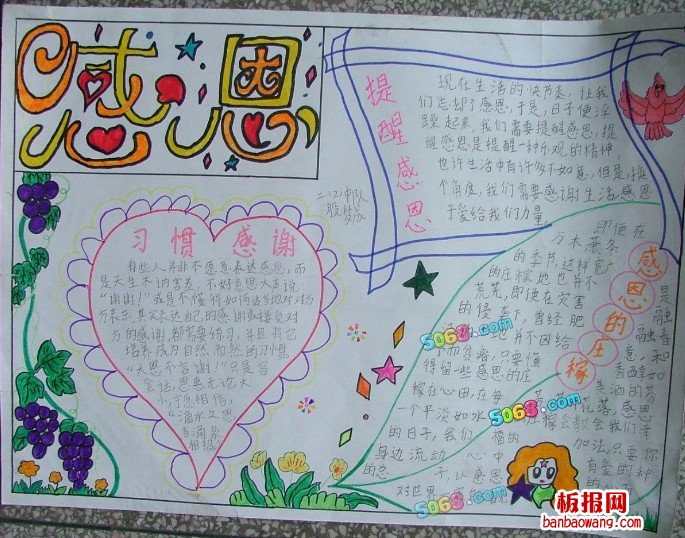 感恩
提醒感恩
现在生活的快节奏,让我
们忘却了感恩,于是,日子便浮
躁起来。我们需要提醒感恩,提
醒感恩是提醒一种乐观的精神
也许生活中有许多不如意,但是,换
个角度,我们需要感谢生活感恩
于爱给我们力量
二(2)中队
习惯感谢
有些人并非不愿意表达感恩,而
是天生木讷害羞,不好意思大声说:
“谢谢!”或是不懂得如何适当地对对方
表示,其实表达自己的感谢或接受对
方的感谢,都需要练习,并且将它
培养成为自然而然的习惯。
“大恩不言谢!”只是客
套话,恩惠无论大
小,宁愿相信,
“滴水之恩
当涌泉
相报
感恩的庄稼
即便在
万木萧条
的季节,这样
的庄稼地也并不
荒芜,即便在灾害
的侵蚀下,曾经肥
地并不因给
予而贫瘠,只要懂
得留一些感恩的庄
稼在心田,在每
一个平淡如水
的日子,我们
身边流动
心中
的
子,以感恩
对世界
是
融
融春
意,和
香醇如
美酒的芬
花落,感恩
稼云教会我们幸
福的
加法,只要你
有爱的种
的
5068.com
5068.com
5068.com
5068.com
板报网
banbaowang.com